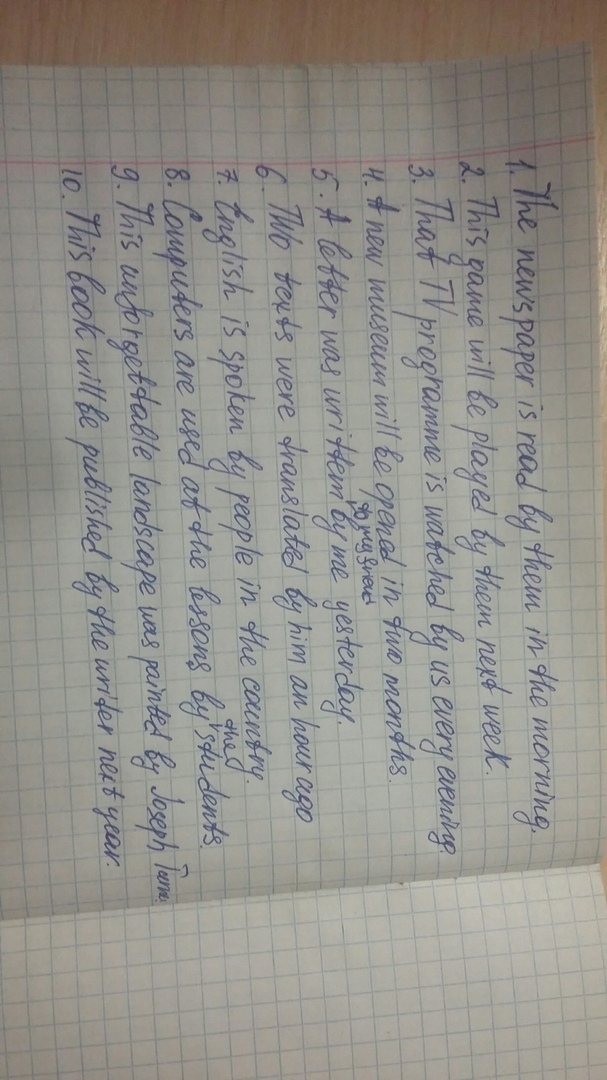 1. The newspaper is read by them in the morning.
2. This game will be played by them next week.
3. That TV programme is watched by us every evening.
4. A new museum will be opened in two months.
to my friend
5. A letter was written by me yesterday.
6. Two texts were translated by him an hour ago
7. English is spoken by people in the country.
the
8. Computers are used at the lessons by students.
9. This unforgettable landscape was painted by Joseph
10. This book will be published by the writer next year.